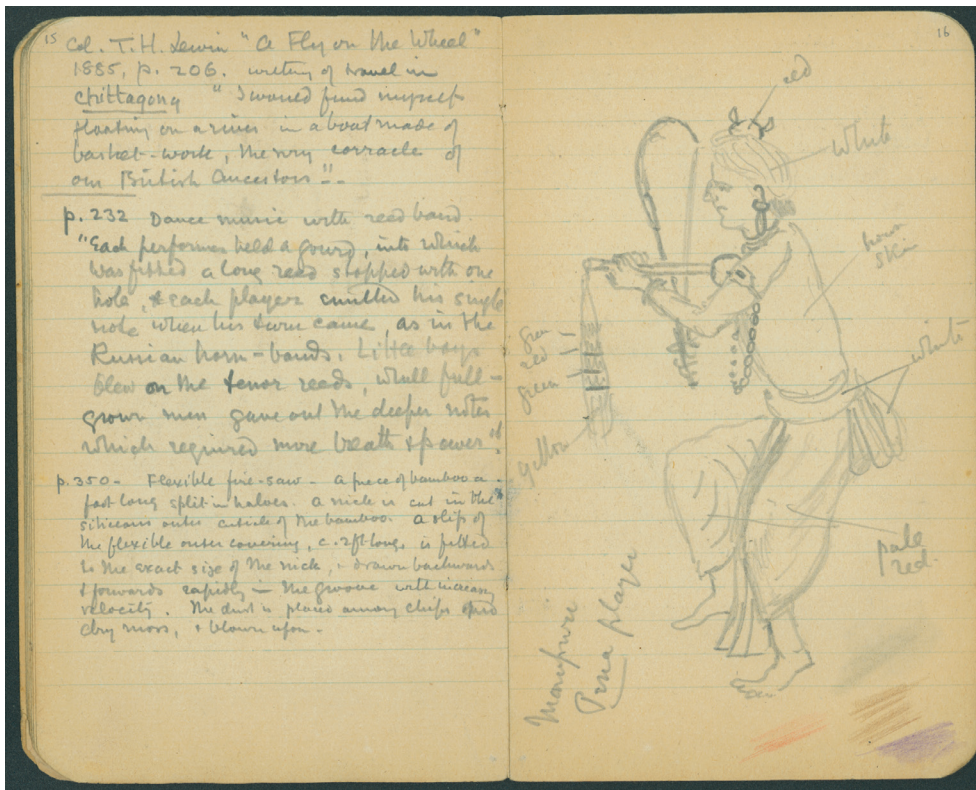 15
Col. T.H. Lewin "A Fly on the Wheel"
1885, p. 206. writing of travel in
Chittagong "I would find myself
floating on a river in a boat made of
basket-work, the very corracle of
our British Ancestors".
p. 232 Dance music with reed band.
"Each performer held a gourd, into which
was fitted a long reed stopped with one
hole, & each player emitted his single
note when his turn came, as in the
Russian horn-bands. Little boys
blew on the tenor reeds, whilst full-
grown men gave out the deeper notes
which required more breath & power".
p. 350 - Flexible fire-saw - A piece of bamboo a
foot long split in halves. A nick is cut in the
siliceous outer outside of the bamboo. A slip of
the flexible outer covering, c. 2ft long, is fitted
to the exact size of the nick, & drawn backwards
& forwards rapidly in the groove with increasing
velocity. The dust is placed among chips
dry moss, & blown upon -
16
red
white
brown
skin
white
green
red
green
yellow
pale
red.
Manipuri
Pena player